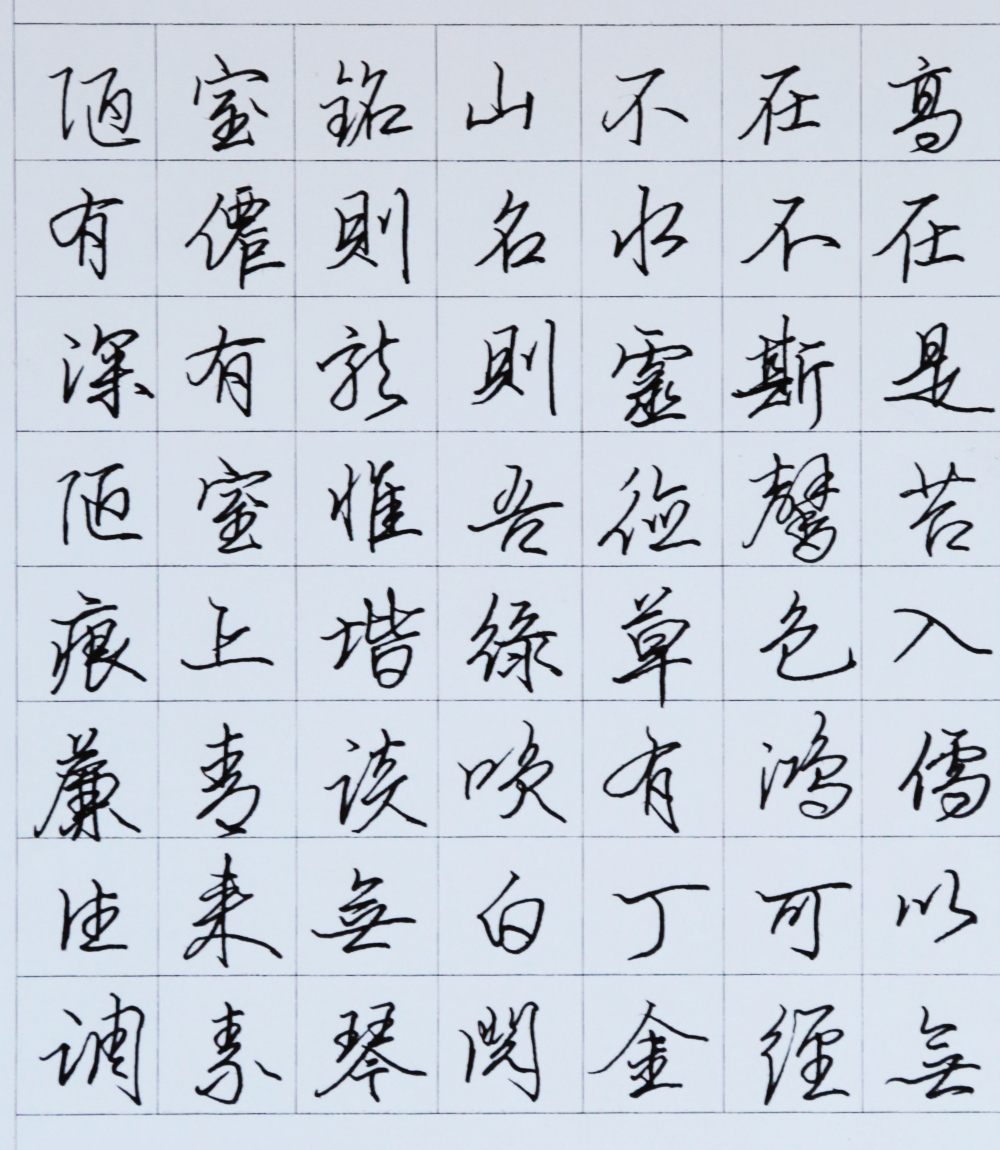 陋室銘山不在高
有僊則名水不在
深有龙則靈斯是
陋室惟吾德馨苔
痕上堦綠草色入
薕青談唤有鸿儒
往来無白丁可以
调素琴閲金經無